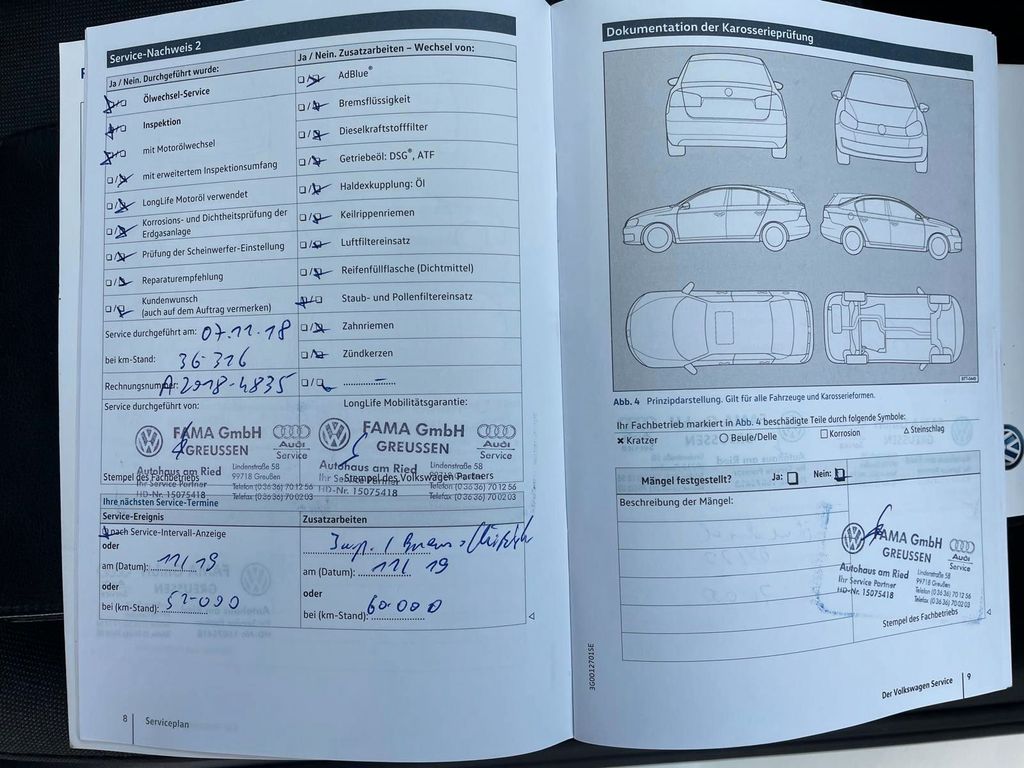 Service-Nachweis 2
Ja / Nein. Durchgeführt wurde:
Ölwechsel-Service
Inspektion
mit Motorölwechsel
mit erweitertem Inspektionsumfang
LongLife Motoröl verwendet
Korrosions- und Dichtheitsprüfung der
Erdgasanlage
Prüfung der Scheinwerfer-Einstellung
Reparaturempfehlung
Kundenwunsch
(auch auf dem Auftrag vermerken)
Service durchgeführt am: 07.11.18
bei km-Stand: 36.316
Rechnungsnummer: A2018-4835
Service durchgeführt von:
FAMA GmbH
GREUSSEN
Audi
Service
Autohaus am Ried
Ihr Service Partner
HD-Nr. 15075418
Lindenstraße 58
99718 Greußen
Telefon (0 36 36) 70 12 56
Telefax (0 36 36) 70 02 03
Stempel des Fachbetriebs
Ja / Nein. Zusatzarbeiten – Wechsel von:
AdBlue®
Bremsflüssigkeit
Dieselkraftstofffilter
Getriebeöl: DSG®, ATF
Haldexkupplung: Öl
Keilrippenriemen
Luftfiltereinsatz
Reifenfüllflasche (Dichtmittel)
Staub- und Pollenfiltereinsatz
Zahnriemen
Zündkerzen
LongLife Mobilitätsgarantie:
FAMA GmbH
GREUSSEN
Audi
Service
Autohaus am Ried
Ihr Service Partner
HD-Nr. 15075418
Lindenstraße 58
99718 Greußen
Telefon (0 36 36) 70 12 56
Telefax (0 36 36) 70 02 03
Stempel des Volkswagen Partners
Ihre nächsten Service-Termine
Service-Ereignis
nach Service-Intervall-Anzeige
oder
am (Datum): 11/19
oder
bei (km-Stand): 52.000
Zusatzarbeiten
am (Datum): 11/19
oder
bei (km-Stand): 60.000
8 Serviceplan
Dokumentation der Karosserieprüfung
Abb. 4 Prinzipdarstellung. Gilt für alle Fahrzeuge und Karosserieformen.
Ihr Fachbetrieb markiert in Abb. 4 beschädigte Teile durch folgende Symbole:
Kratzer Beule/Delle Korrosion Steinschlag
Mängel festgestellt? Ja: Nein:
Beschreibung der Mängel:
FAMA GmbH
GREUSSEN
Audi
Service
Autohaus am Ried
Ihr Service Partner
HD-Nr. 15075418
Lindenstraße 58
99718 Greußen
Telefon (0 36 36) 70 12 56
Telefax (0 36 36) 70 02 03
Stempel des Fachbetriebs
3G0012701SE
Der Volkswagen Service 9